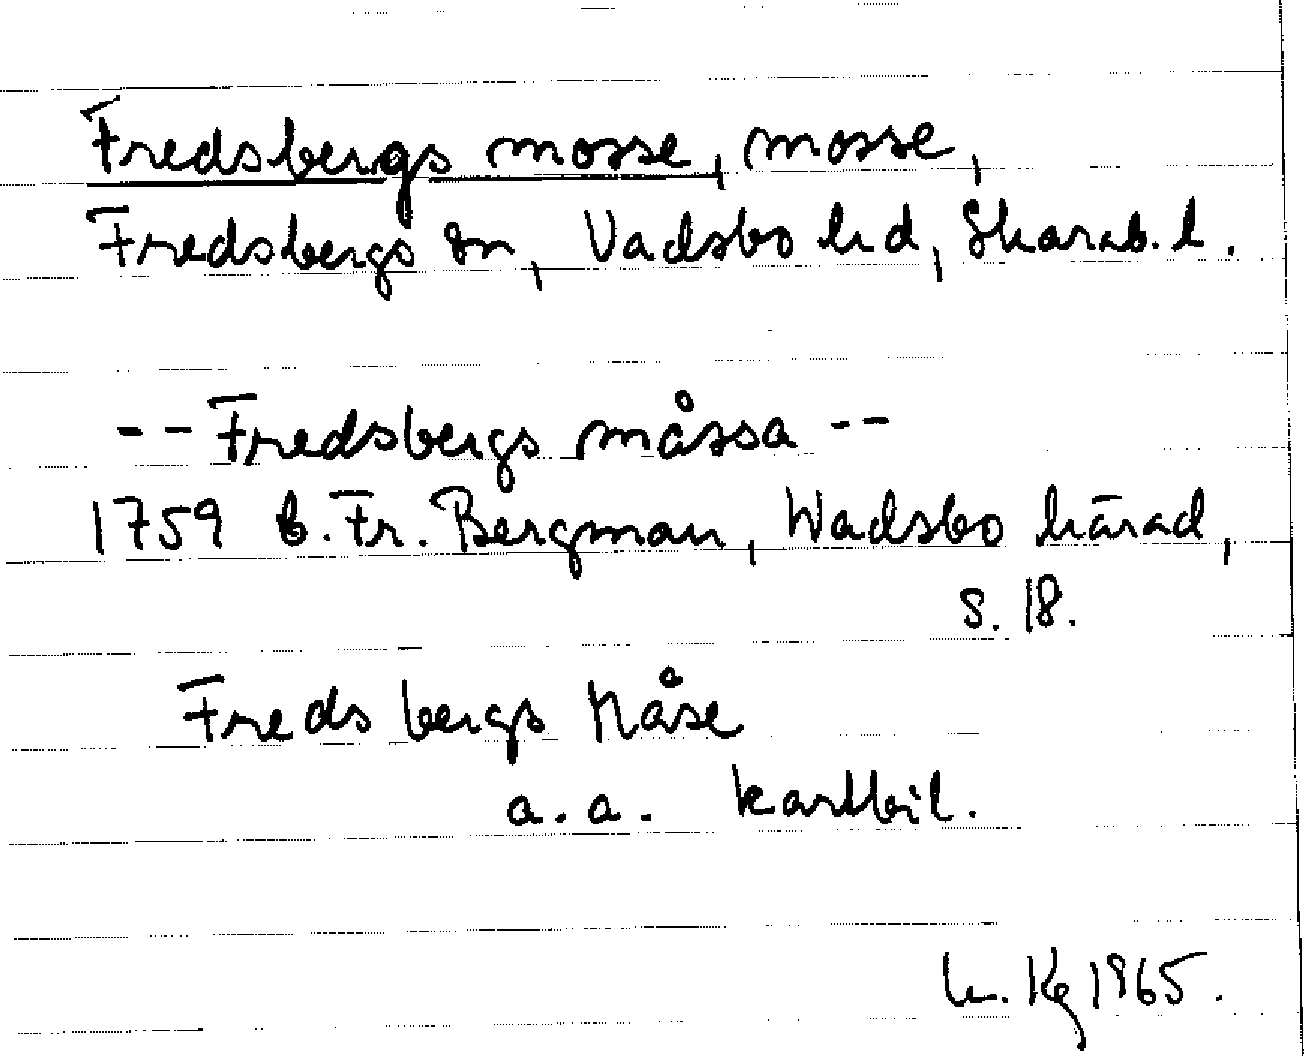 Fredsbergs mosse, mosse,
Fredsbergs sn, Vadsbo hd, Skarab. l.
-- Fredsbergs måssa --
1759 b. Fr. Bergman, Wadsbo härad,
s. 18.
Fredsbergs Måse
a.a. kartbil.
Kg 1965.